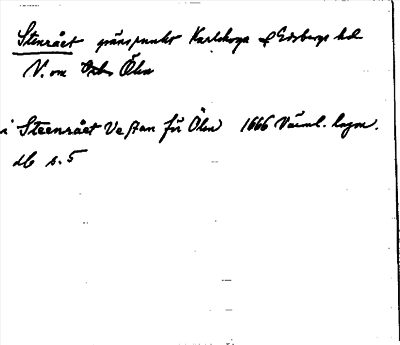 Stenrået gränspunkt Karlskoga o Edsbergs hd
V. om Ölen
i Steenrået Vestan för Ölen 1666 Värml. lagm.
db s. 5